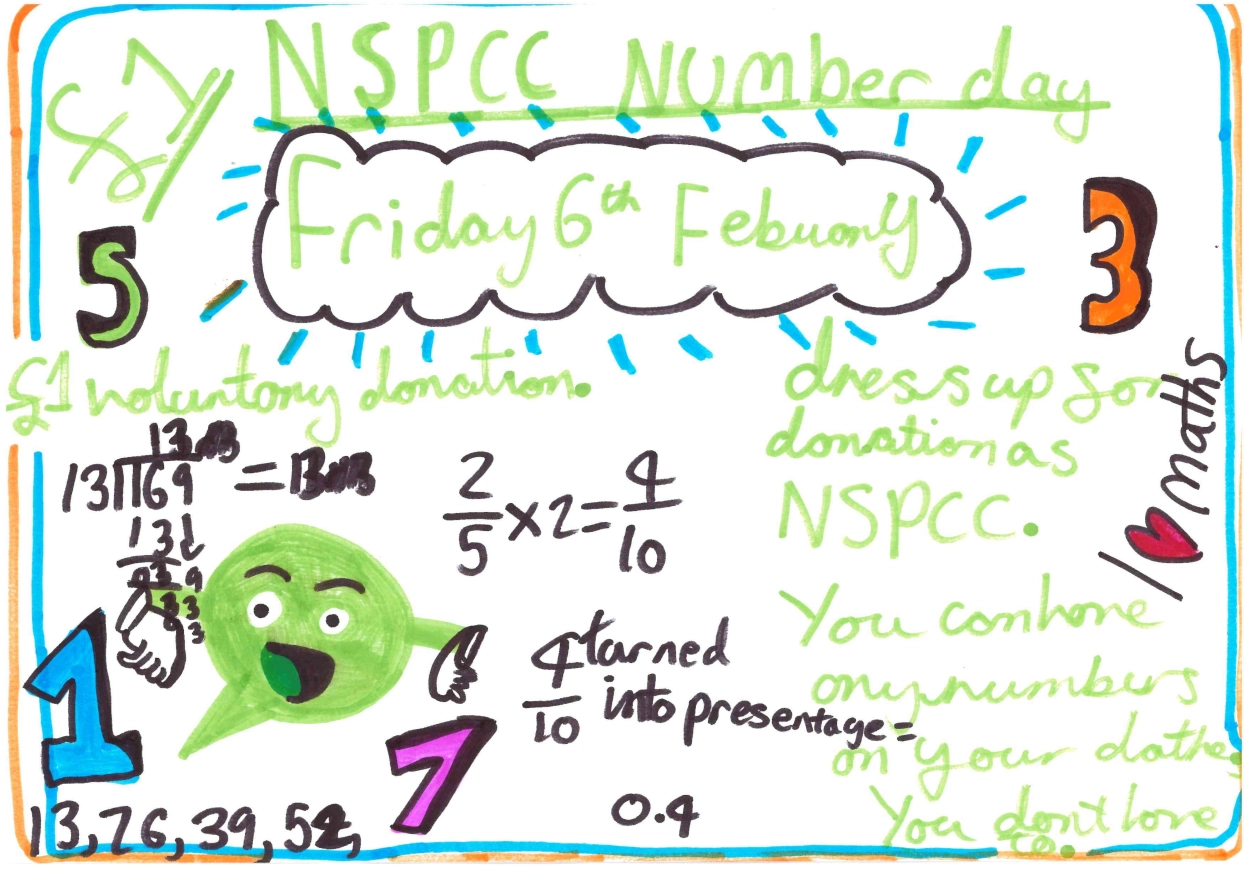 NSPCC Number day
£1/
Friday 6th Febuary
5
3
£1 voluntary donation.
dress up for
donation as
NSPCC.
I maths
13
13 169 = 13
2/5 × 2 = 4/10
You can have
any numbers
on your clothes
You don't have
to.
4/10 turned
into presentage =
0.4
1
7
13, 26, 39, 52,